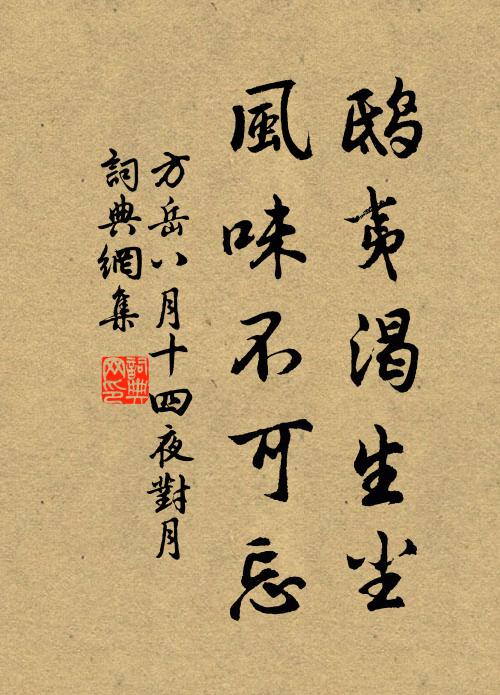 鸱夷渴生尘
風味不可忘
方岳八月十四夜對月
詞典網集
詞典
网印